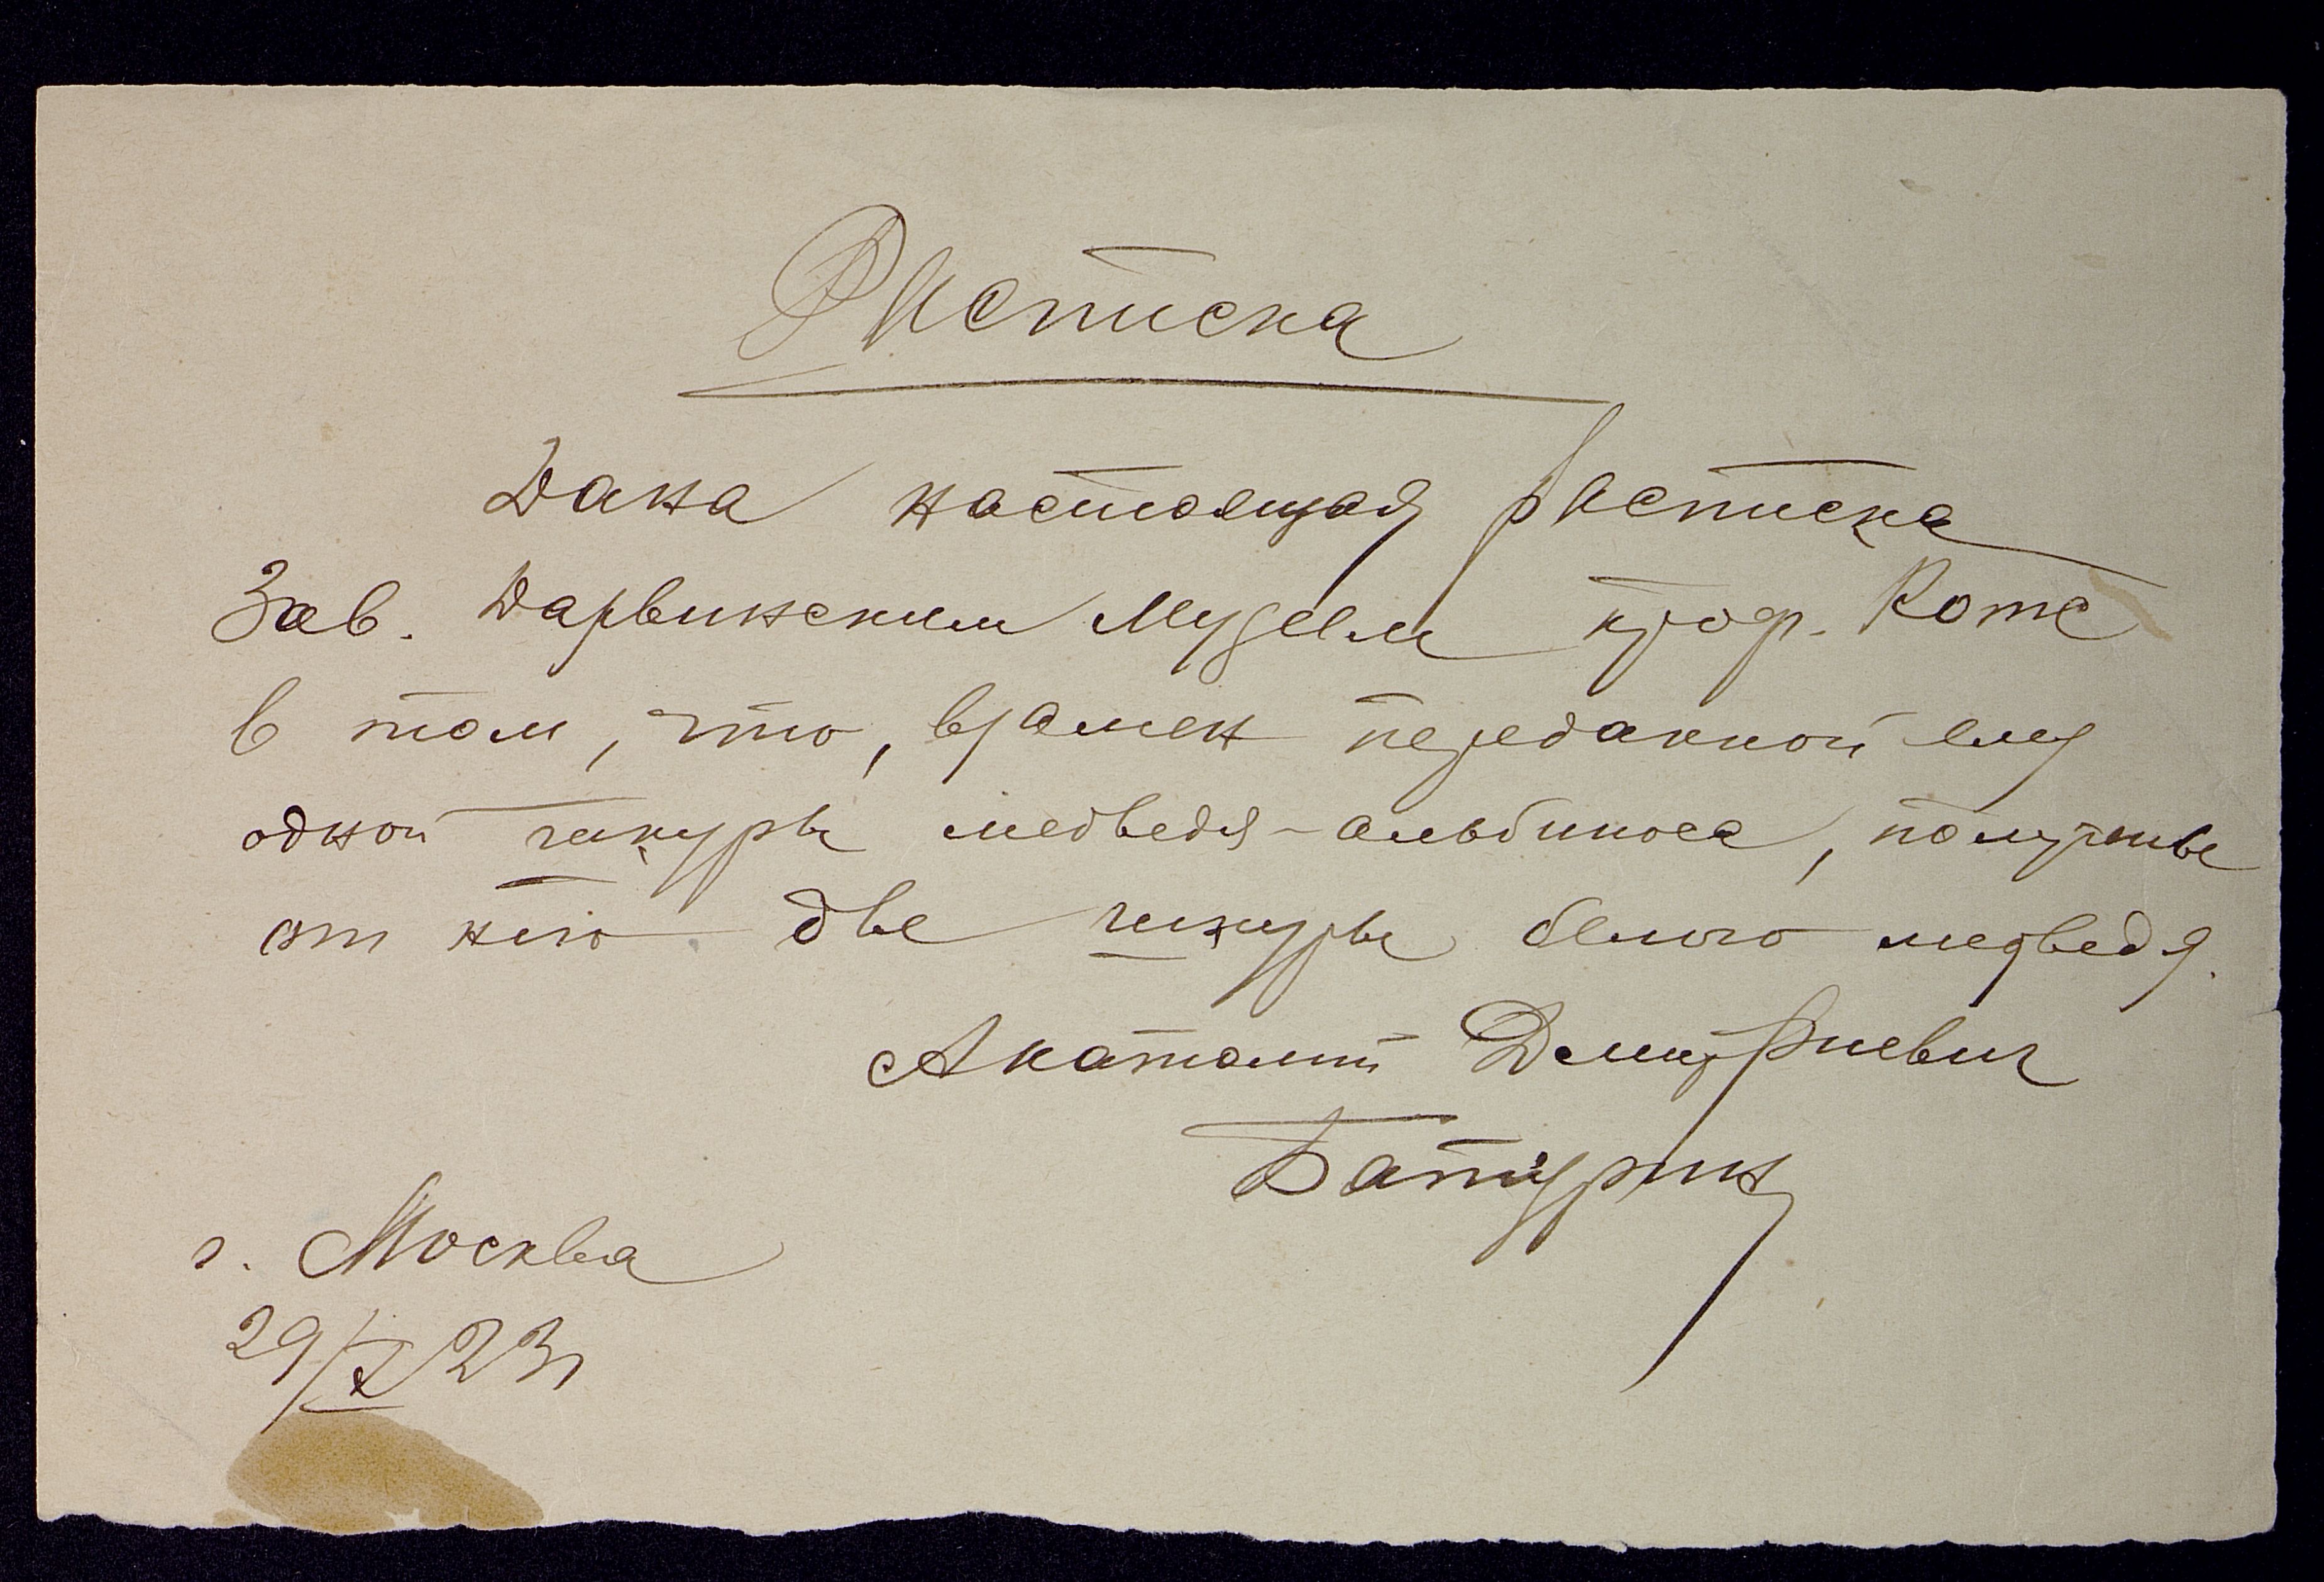 Расписка
Дана настоящая расписка
Зав. Дарвинским Музеем проф. Котс
в том, что, взамен переданной ему
одной шкуры медведя-альбиноса, получены
от него две шкуры белого медведя.
Анатолий Димитриевич
Батурин
г. Москва
29/X 23г